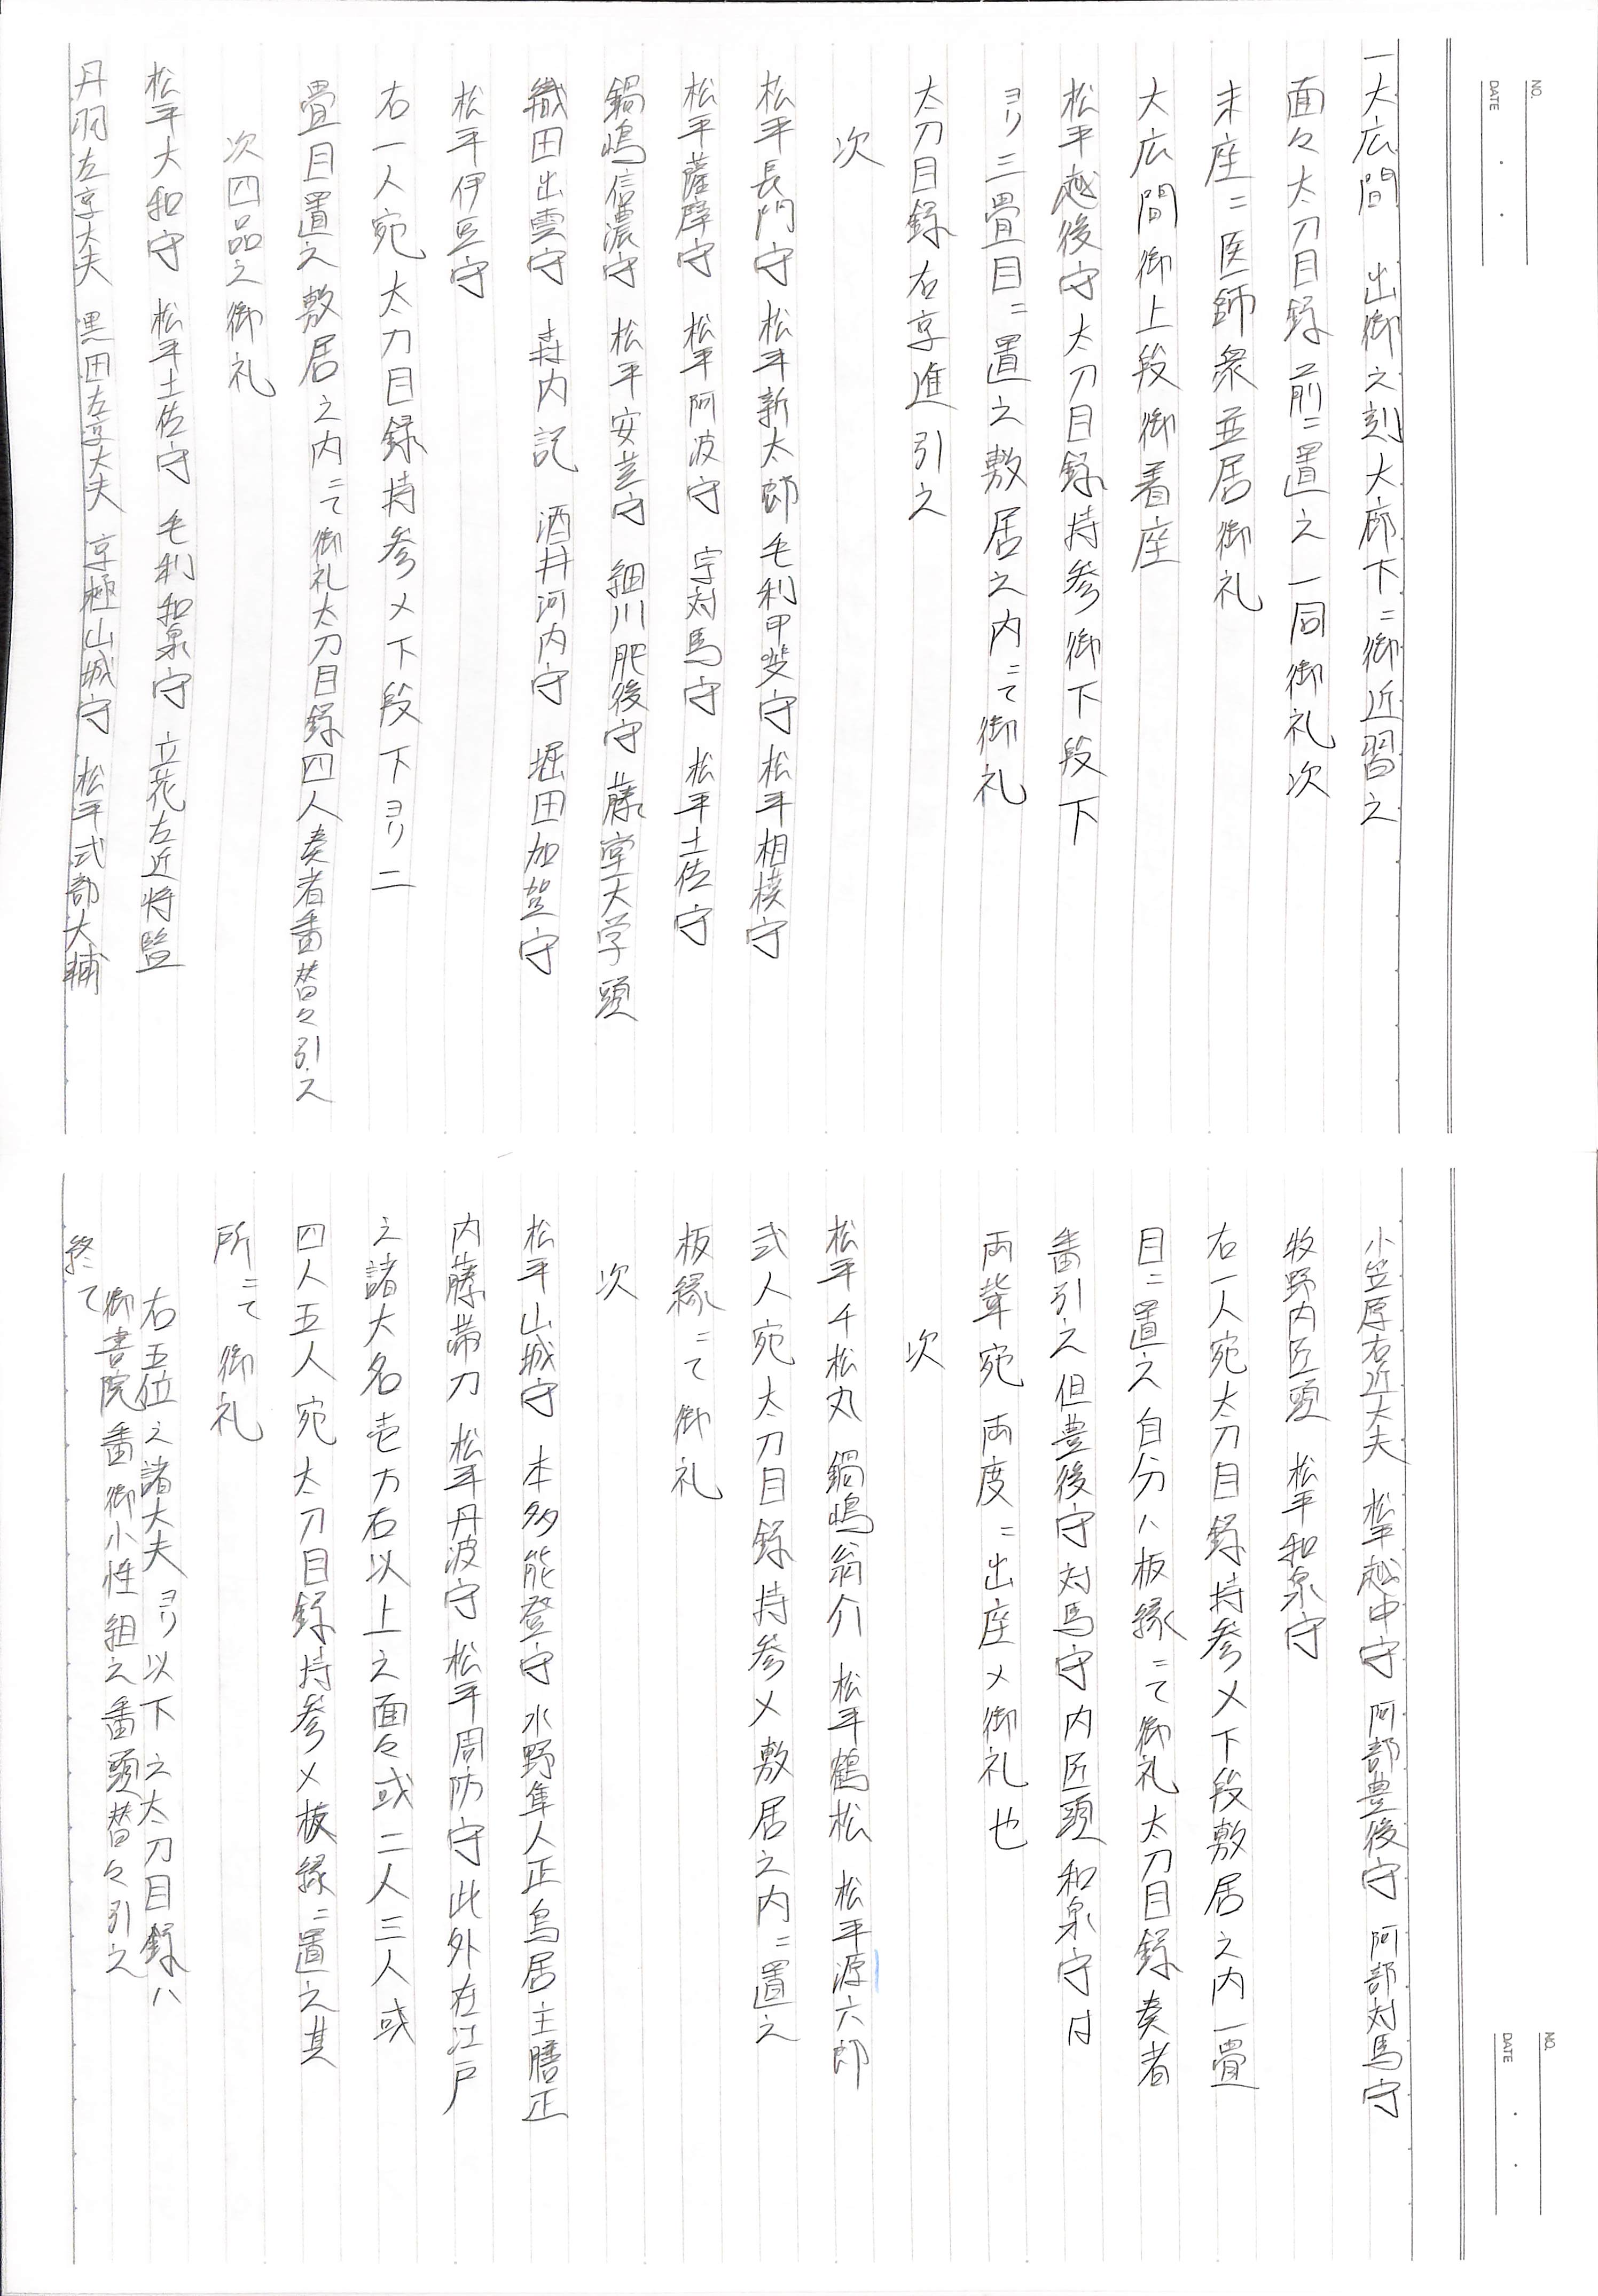 NO.
DATE
一大広間 出御之刻大廊下ニ御近習之
面々太刀目録前ニ置之一同御礼次
末座ニ医師衆並居御礼
大広間御上段御着座
松平越後守太刀目録持参御下段下
ヨリ三畳目ニ置之敷居之内ニて御礼
太刀目録右京進引之
次
松平長門守 松平新太郎 毛利甲斐守 松平相模守
松平薩摩守 松平阿波守 宗対馬守 松平土佐守
鍋嶋信濃守 松平安芸守 細川肥後守 藤堂大学頭
織田出雲守 森内記 酒井河内守 堀田加賀守
松平伊豆守
右一人宛太刀目録持参〆下段下ヨリ二
畳目置之敷居之内ニて御礼太刀目録四人奏者番替々引之
次四品之御礼
松平大和守 松平土佐守 毛利和泉守 立花左近将監
丹羽左京大夫 黒田左京大夫 京極山城守 松平式部大輔
NO.
DATE
小笠原右近大夫 松平越中守 阿部豊後守 阿部対馬守
牧野内匠頭 松平和泉守
右一人宛太刀目録持参〆下段敷居之内一畳
目ニ置之自分ハ板縁ニて御礼太刀目録奏者
番引之但豊後守対馬守内匠頭和泉守は
両輩宛両度ニ出座〆御礼也
次
松平千松丸 鍋嶋翁介 松平鶴松 松平源六郎
弐人宛太刀目録持参〆敷居之内ニ置之
板縁ニて御礼
次
松平山城守 本多能登守 水野隼人正 鳥居主膳正
内藤帯刀 松平丹波守 松平周防守此外在江戸
之諸大名壱万石以上之面々或二人三人或
四人五人宛太刀目録持参〆板縁ニ置之其
所ニて御礼
右五位之諸大夫ヨリ以下之太刀目録ハ
御書院番御小性組之番頭替々引之
終て